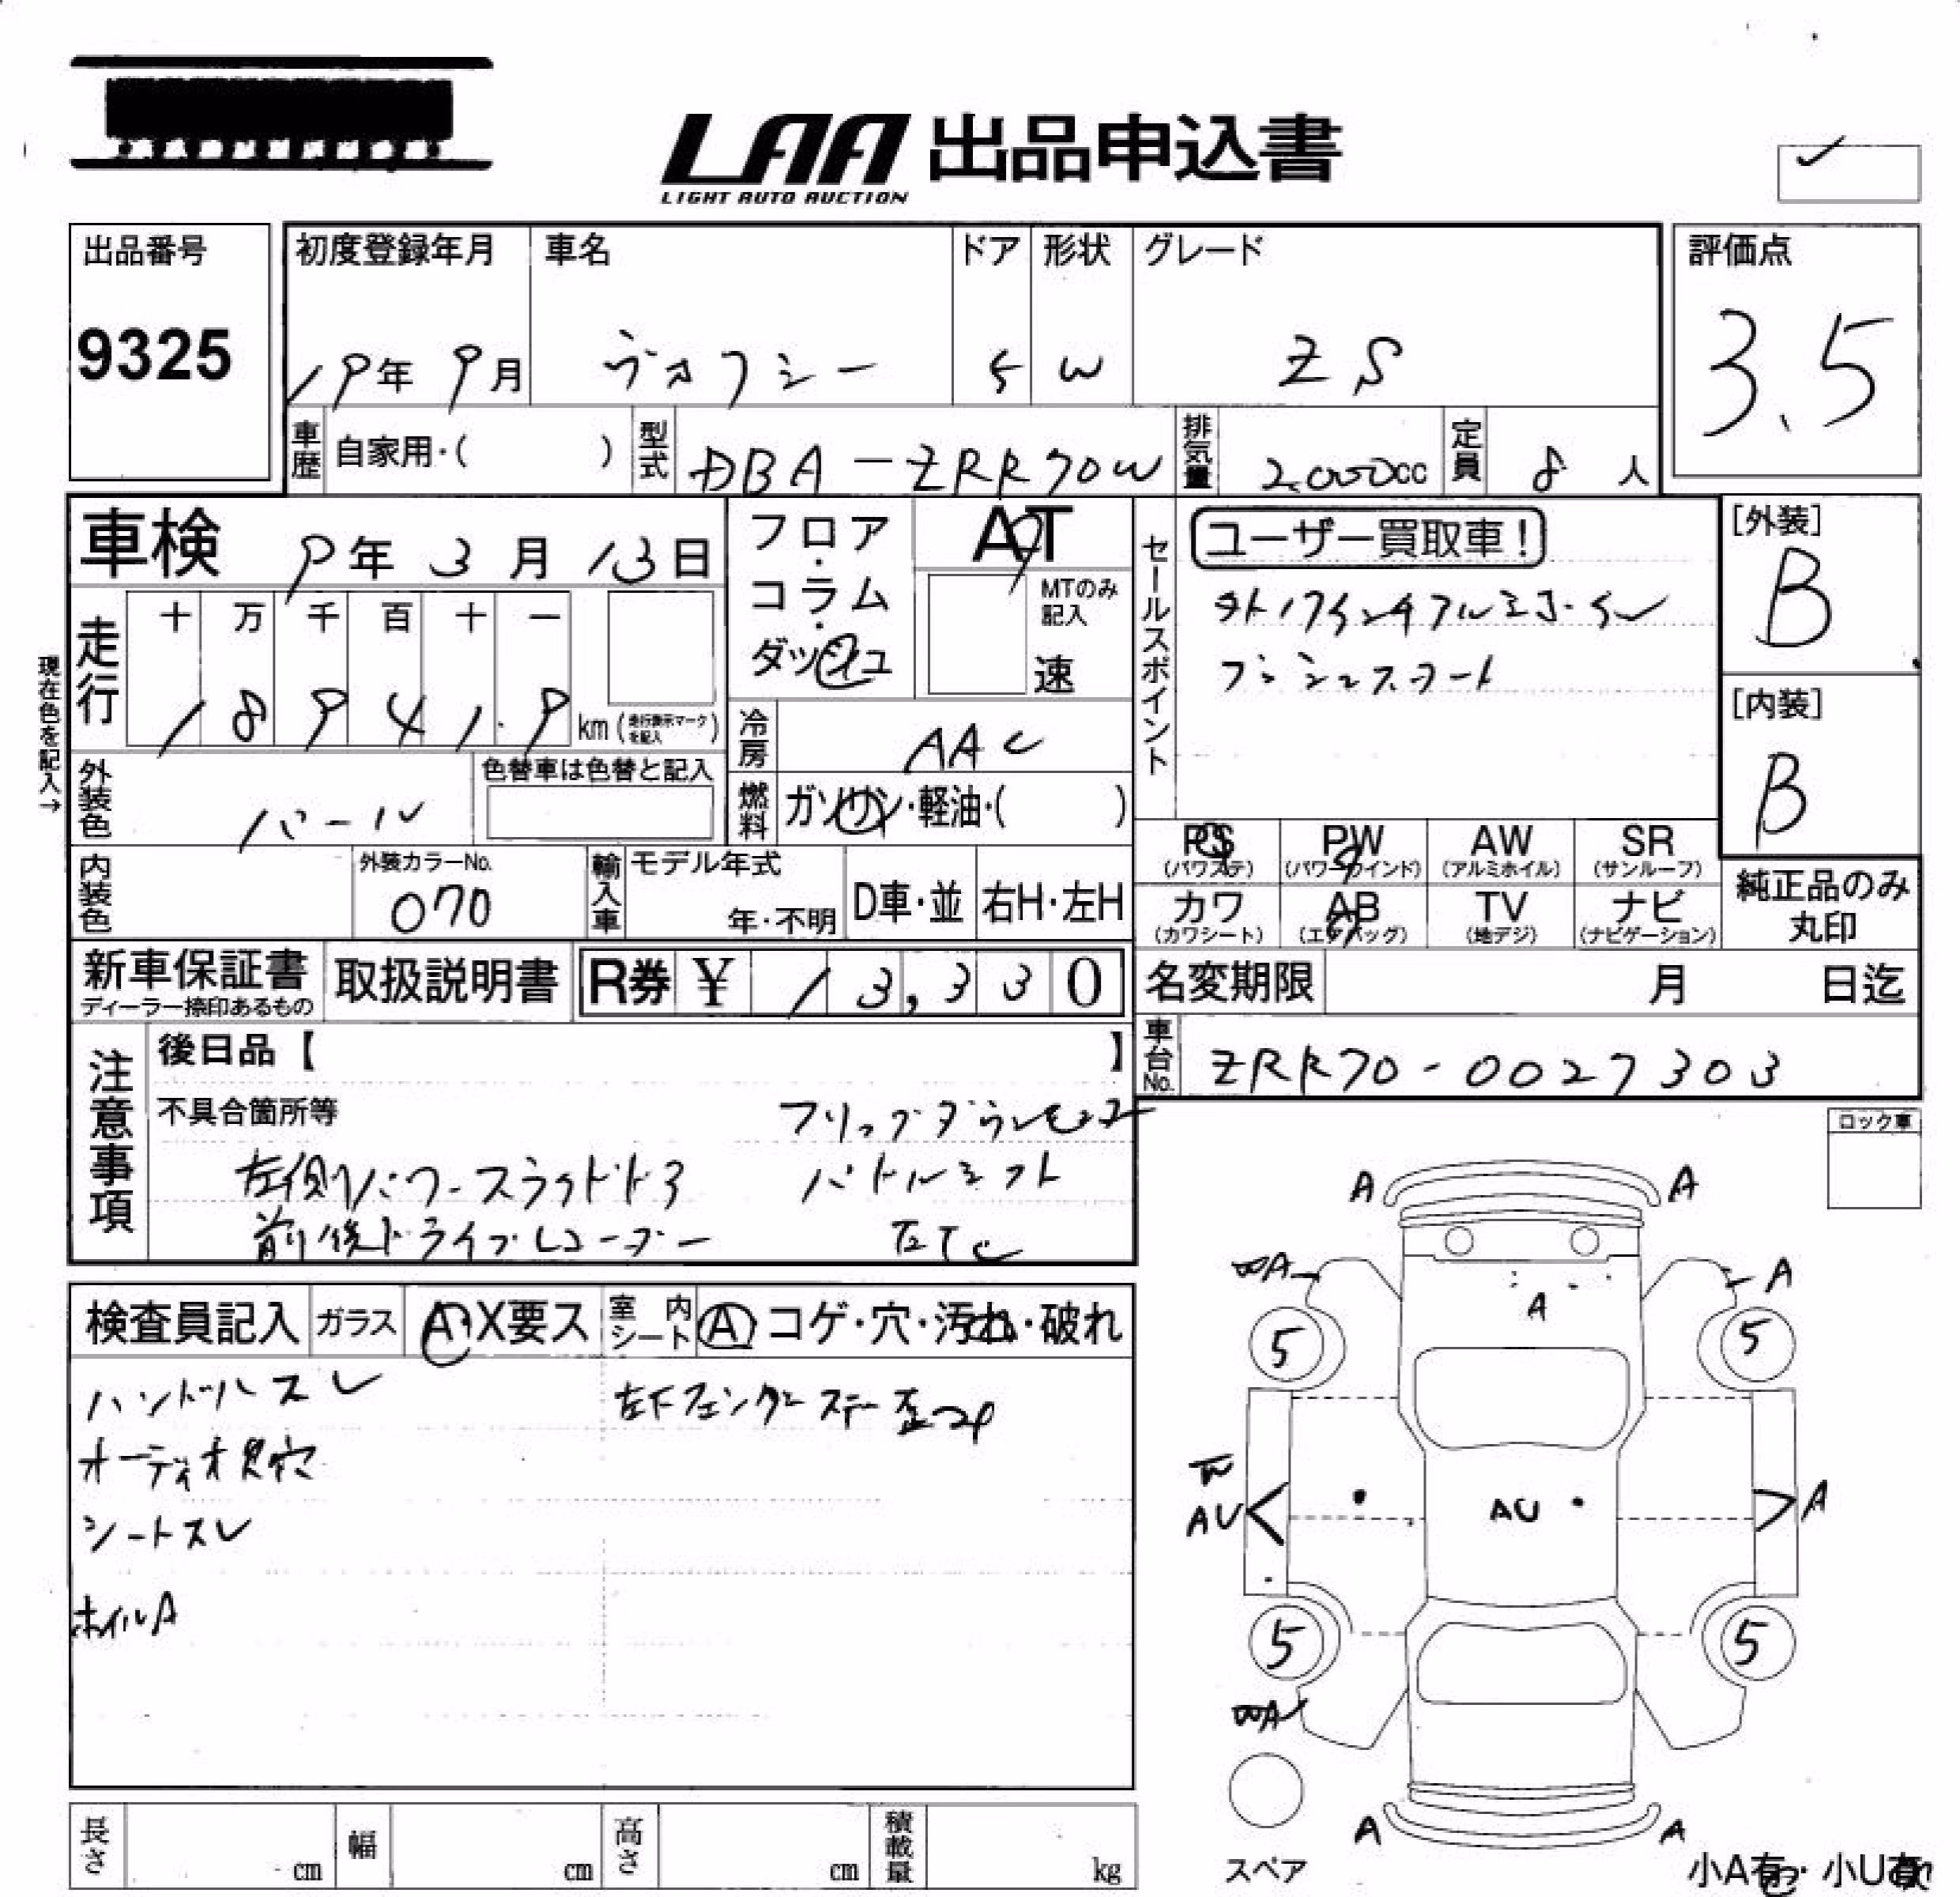 LAA 出品申込書
LIGHT AUTO AUCTION
出品番号
9325
初度登録年月 車名 ドア 形状 グレード
19年 9月 ヴォクシー 5 W ZS
評価点
3.5
車歴 自家用・( ) 型式 DBA-ZRR70W 排気量 2,000cc 定員 8 人
車検 9年 3月 13日
フロア・コラム・ダッシュ
AT
MTのみ記入
速
セールスポイント
ユーザー買取車!
プッシュスタート
[外装]
B
[内装]
B
現在色を記入→
走行 十 万 千 百 十 一
1 8 9 4 1. 9 km (走行表示マークを記入)
冷房 AAC
外装色 パール
色替車は色替と記入
燃料 ガソリン・軽油・( )
PS (パワステ) PW (パワーウインド) AW (アルミホイル) SR (サンルーフ)
カワ (カワシート) AB (エアバッグ) TV (地デジ) ナビ (ナビゲーション)
純正品のみ
丸印
内装色 外装カラーNo. 070 輸入車 モデル年式 年・不明 D車・並 右H・左H
新車保証書
ディーラー捺印あるもの
取扱説明書
R券 ¥ 13,330
名変期限 月 日迄
車台No. ZRR70-0027303
注意事項
後日品【 】
不具合箇所等 フリップダウンモニター
左側パワースライドドア パドルシフト
前後ドライブレコーダー ETC
ロック車
検査員記入 ガラス A・X要ス 室内シート A コゲ・穴・汚れ・破れ
ハンドルスレ 左下フェンダーステー歪
オーディオ
シートスレ
ホイルA
A A
A A
A
5 5
AU AU A
5 5
A A
スペア
小A有・小U有
長さ cm 幅 cm 高さ cm 積載量 kg